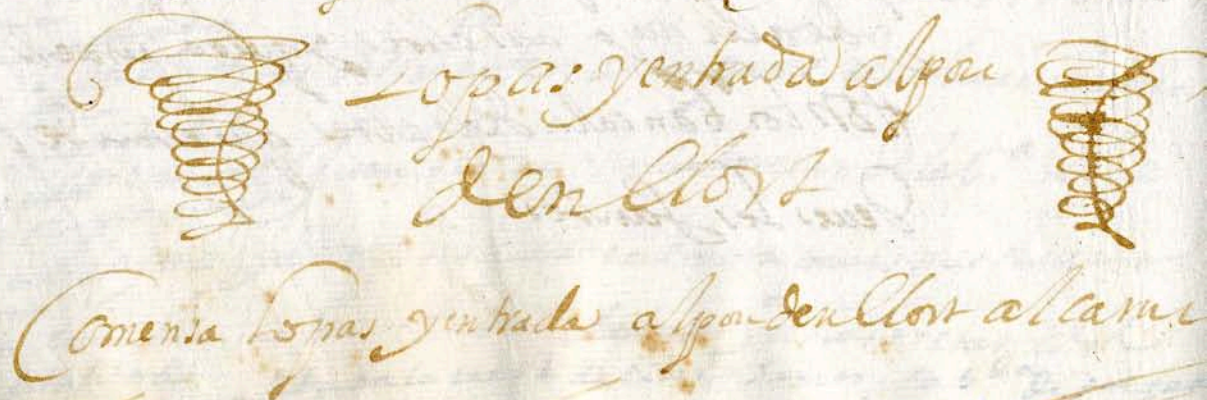 Lopas yentrada alpou
den Llort
Comensa Lopas yentrada alpou den Llort al cami